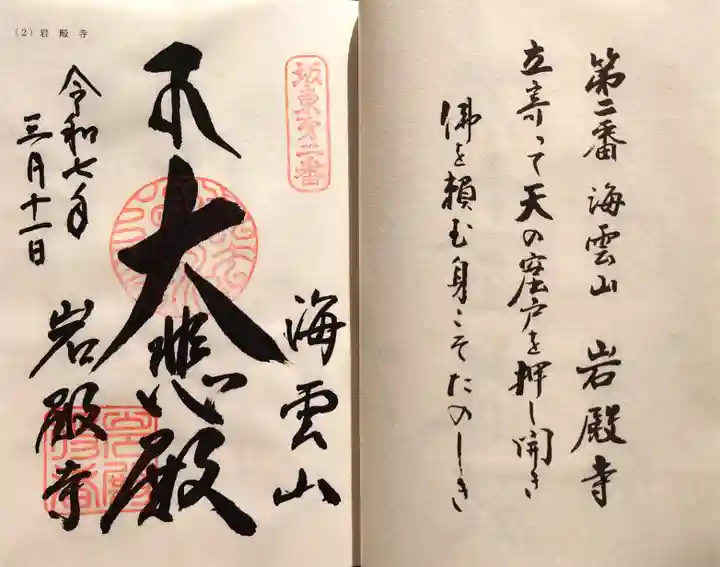 第二番 海雲山 岩殿寺
立寄って天の窟戸を押し開き
佛を頼む身こそたのしき
坂東第二番
海雲山
大悲殿
岩殿寺
令和七年
三月十一日
(2)岩殿寺